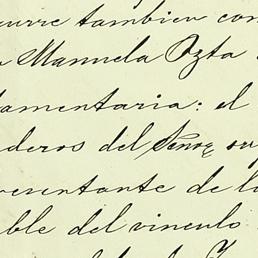 urre tambien con
Manuela Ozta
amentaria: el
deros del Senor
resentante de la
ble del vinculo